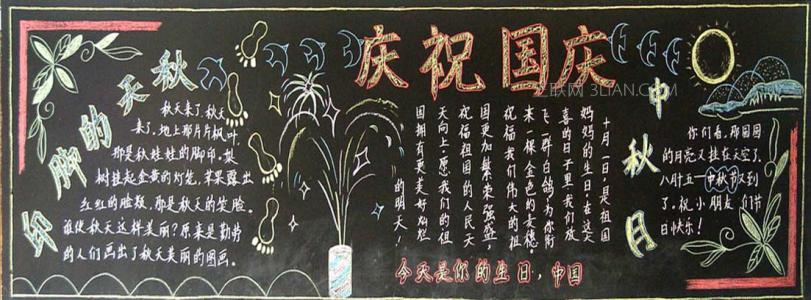 庆祝国庆
秋天的脚印
秋天来了，秋天
来了，地上那片片枫叶，
那是秋娃娃的脚印。梨
树挂起金黄的灯笼，苹果露出
红红的脸颊，那是秋天的笑脸。
谁使秋天这样美丽？原来是勤劳
的人们画出了秋天美丽的图画。
十月一日是祖国
妈妈的生日，在这大
喜的日子里，我们放
飞一群白鸽，为你衔
来一棵金色的麦穗。
祝福我们伟大的祖
国更加繁荣强盛，
祝福祖国的人民天
天向上，愿我们的祖
国拥有更美好灿烂
的明天！
今天是你的生日，中国
中秋月
你们看，那圆圆
的月亮又挂在天空了，
八月十五一中秋节又到
了，祝小朋友们节
日快乐！
3LIAN.COM